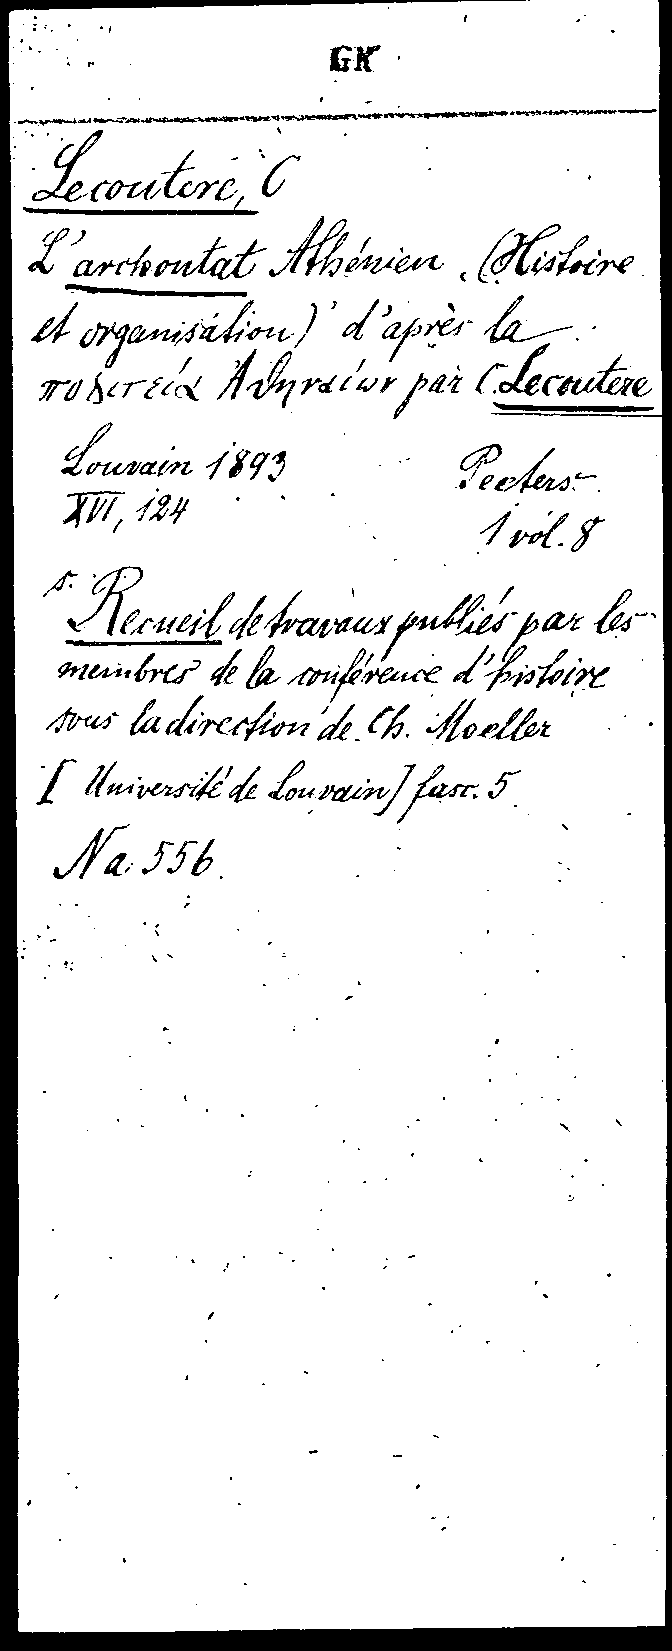 GK
Lecoutere, C
L'archontat Athénien (Histoire
et organisation) d'après la
πολιτεία Ἀθηναίων par C. Lecoutere
Louvain 1893 Peeters
XVI, 124 1 vol. 8
s. Recueil de travaux publiés par les
membres de la conférence d'histoire
sous la direction de Ch. Moeller
[Université de Louvain] fasc. 5
Na 556.